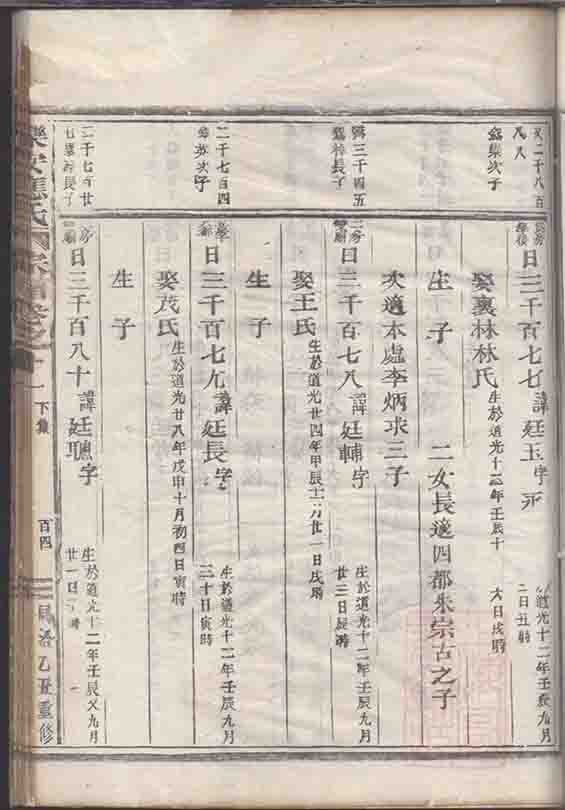 又二千八百
八人
集次子
長房
學後
日三千百七七諱廷玉字
生於道光十二年壬辰九月
二日丑時
娶裏林林氏
生於道光十二年壬辰十
六日戌時
生子
二女長適四都朱宗古之子
次適本處李炳求三子
三千四五
長子
二房
日三千百七八諱廷輔字
生於道光十二年壬辰九月
廿三日辰時
娶王氏
生於道光廿四年甲辰十二月廿一日戌時
生子
二千七百四
次子
日三千百七九諱廷長字
生於道光十二年壬辰九月
三十日寅時
娶茂氏
生於道光廿八年戊申十月初四日寅時
生子
二千七百廿
七
長子
房
日三千百八十諱廷聰字
生於道光十二年壬辰又九月
廿一日時
氏宗
下集
百四
同治乙丑重修